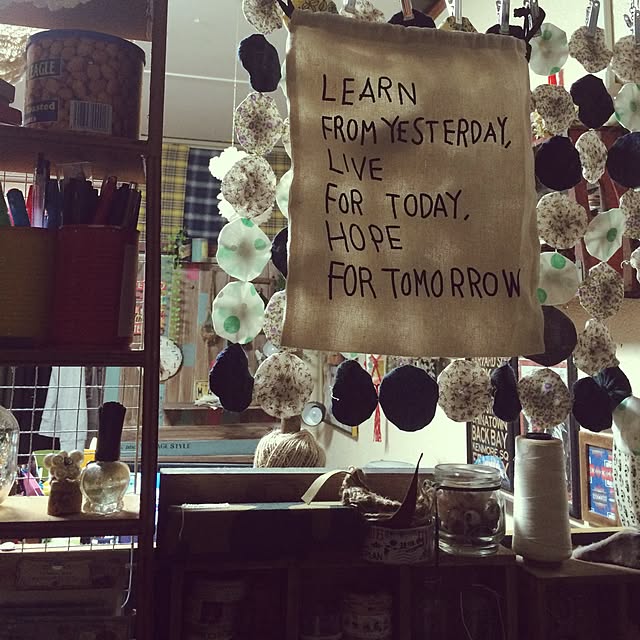 EAGLE
LEARN
FROM YESTERDAY,
LIVE
FOR TODAY,
HOPE
FOR TOMORROW
STYLE
BACK BAY